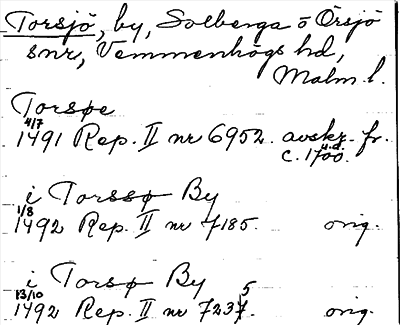 Torsjö, by, Solberga o Örsjö
snr, Vemmenhögs hd,
Malm. l.
Torsøe
4/7
1491 Rep. II nr 6952. avskr. fr.
u.d.
c. 1700.
i Torssø By
1/8
1492 Rep. II nr 7185. orig.
i Torsø By
13/10 5
1492 Rep. II nr 7237. orig.